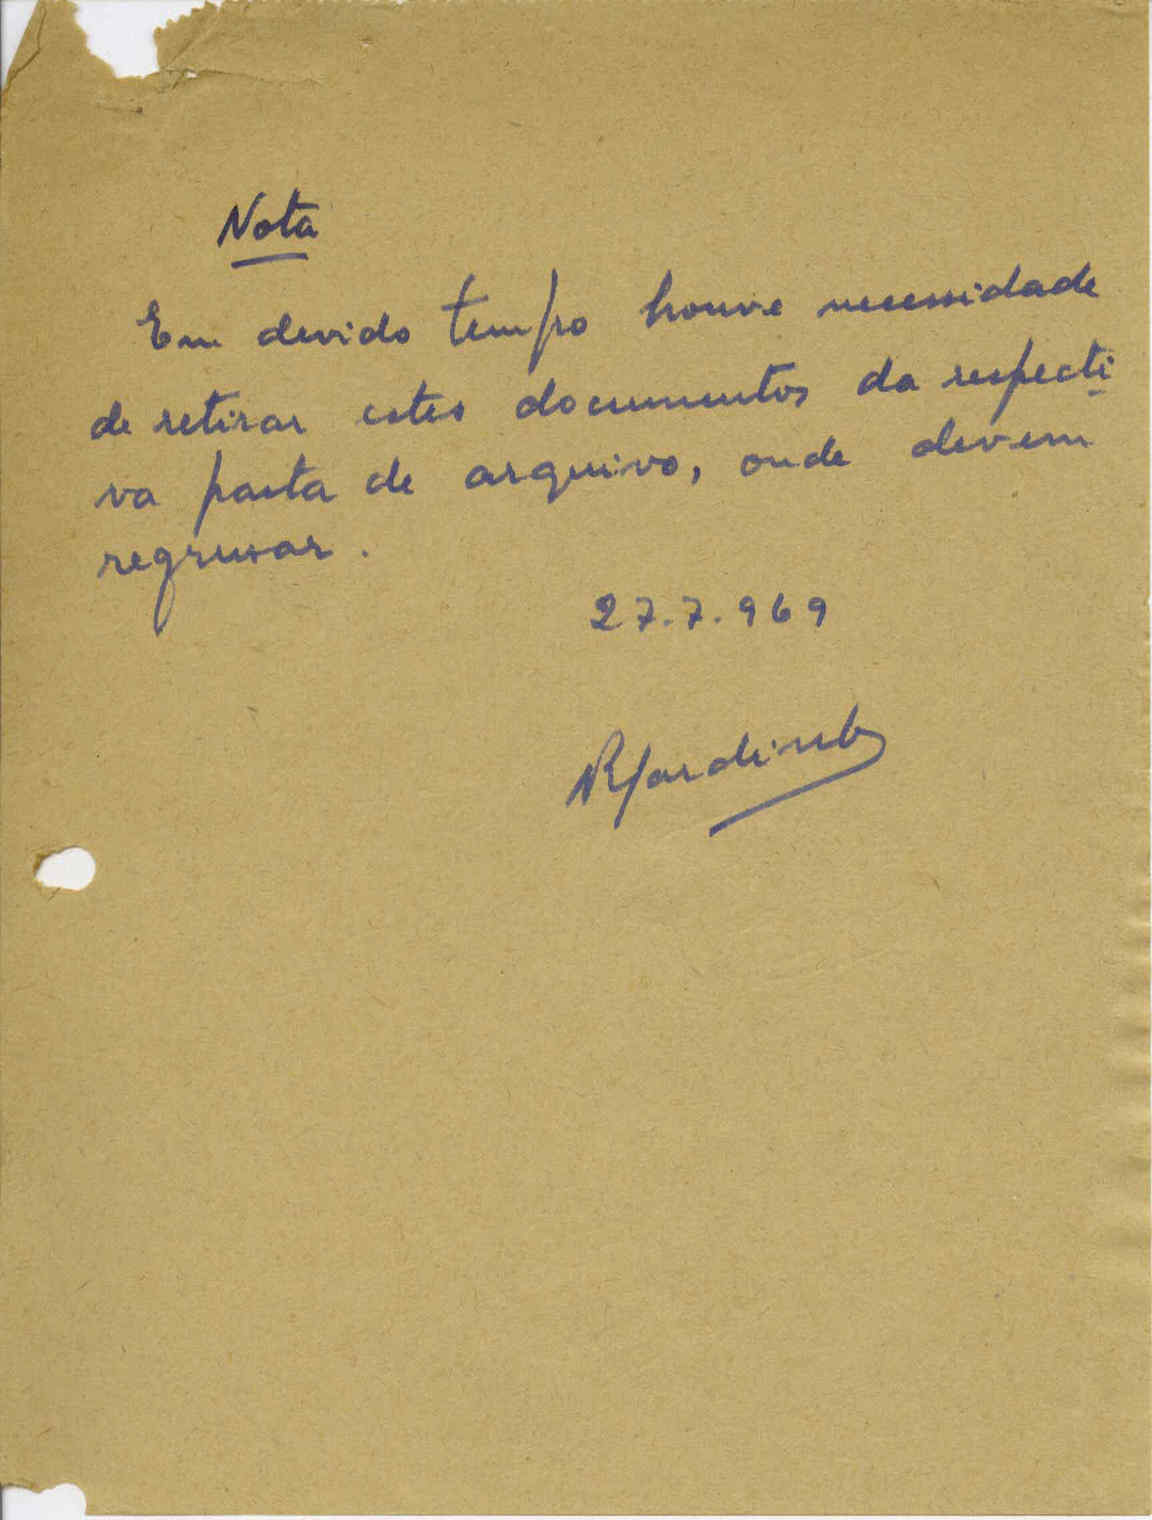 Nota
Em devido tempo houve necessidade
de retirar estes documentos da respecti
va pasta de arquivo, onde devem
regressar.
27.7.969